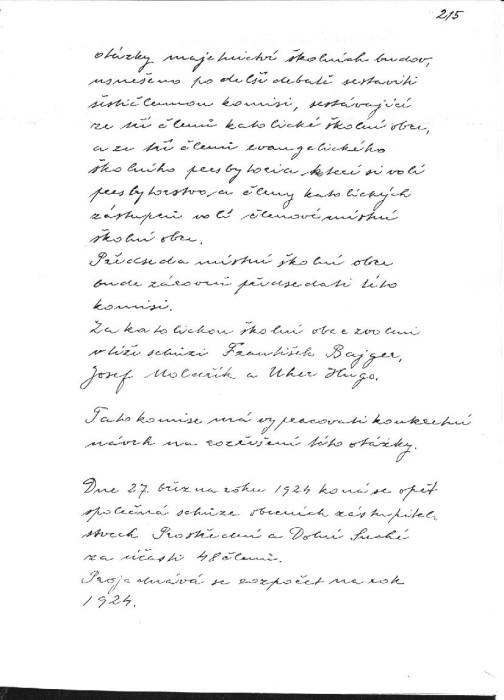 215
otázky majetnictví školních budov,
usnešeno po delší debatě sestaviti
šestičlennou komisi, sestávající
ze tří členů katolické školní obce,
a ze tří členů evangelického
školního presbyteria, které si volí
presbyterstvo, a členy katolických
zástupců volí členové místní
školní obce.
Předseda místní školní obce
bude zároveň předsedati této
komisi.
Za katolickou školní obec zvoleni
v téže schůzi František Bajger,
Josef Moldřík a Uher Hugo.
Tato komise má vypracovati konkretní
návrh na rozřešení této otázky.
Dne 27. března roku 1924 koná se opět
společná schůze obecních zastupitel-
stvech Prostřední a Dolní Suché
za účasti 48 členů.
Projednává se rozpočet na rok
1924.